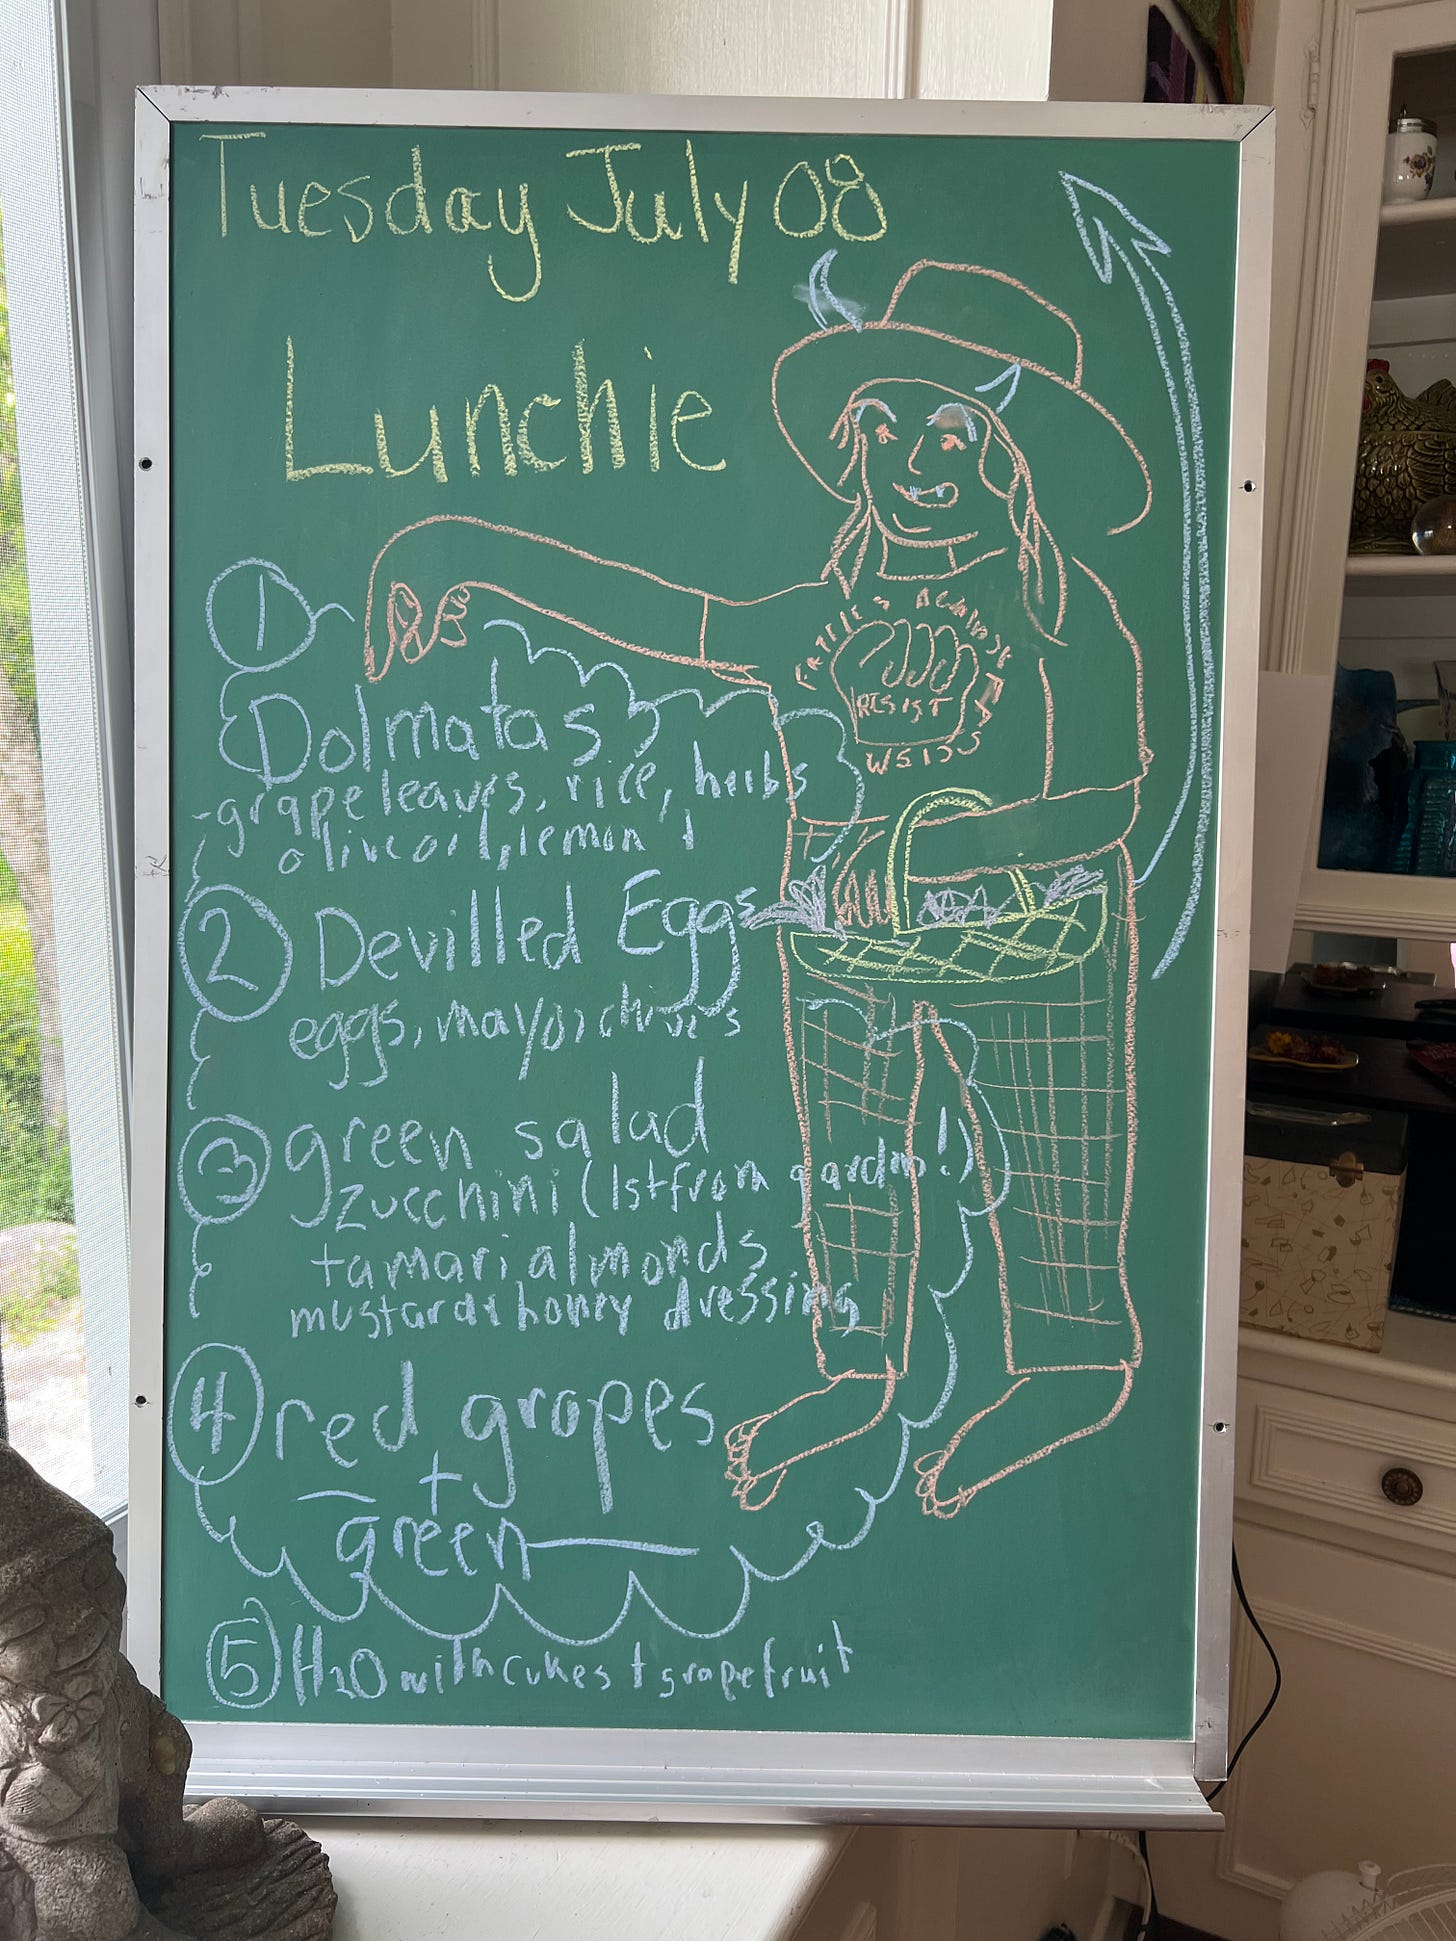 Tuesday July 08
Lunchie
1
Dolmatas
-grape leaves, rice, herbs
olive oil, lemon
2 Devilled Eggs
eggs, mayo, chives
3 green salad
zucchini (1st from garden!)
tamari almonds
mustard & honey dressing
4 red grapes
+
green
5 H2O with cukes + grapefruit
FATTIES AGAINST
RESIST